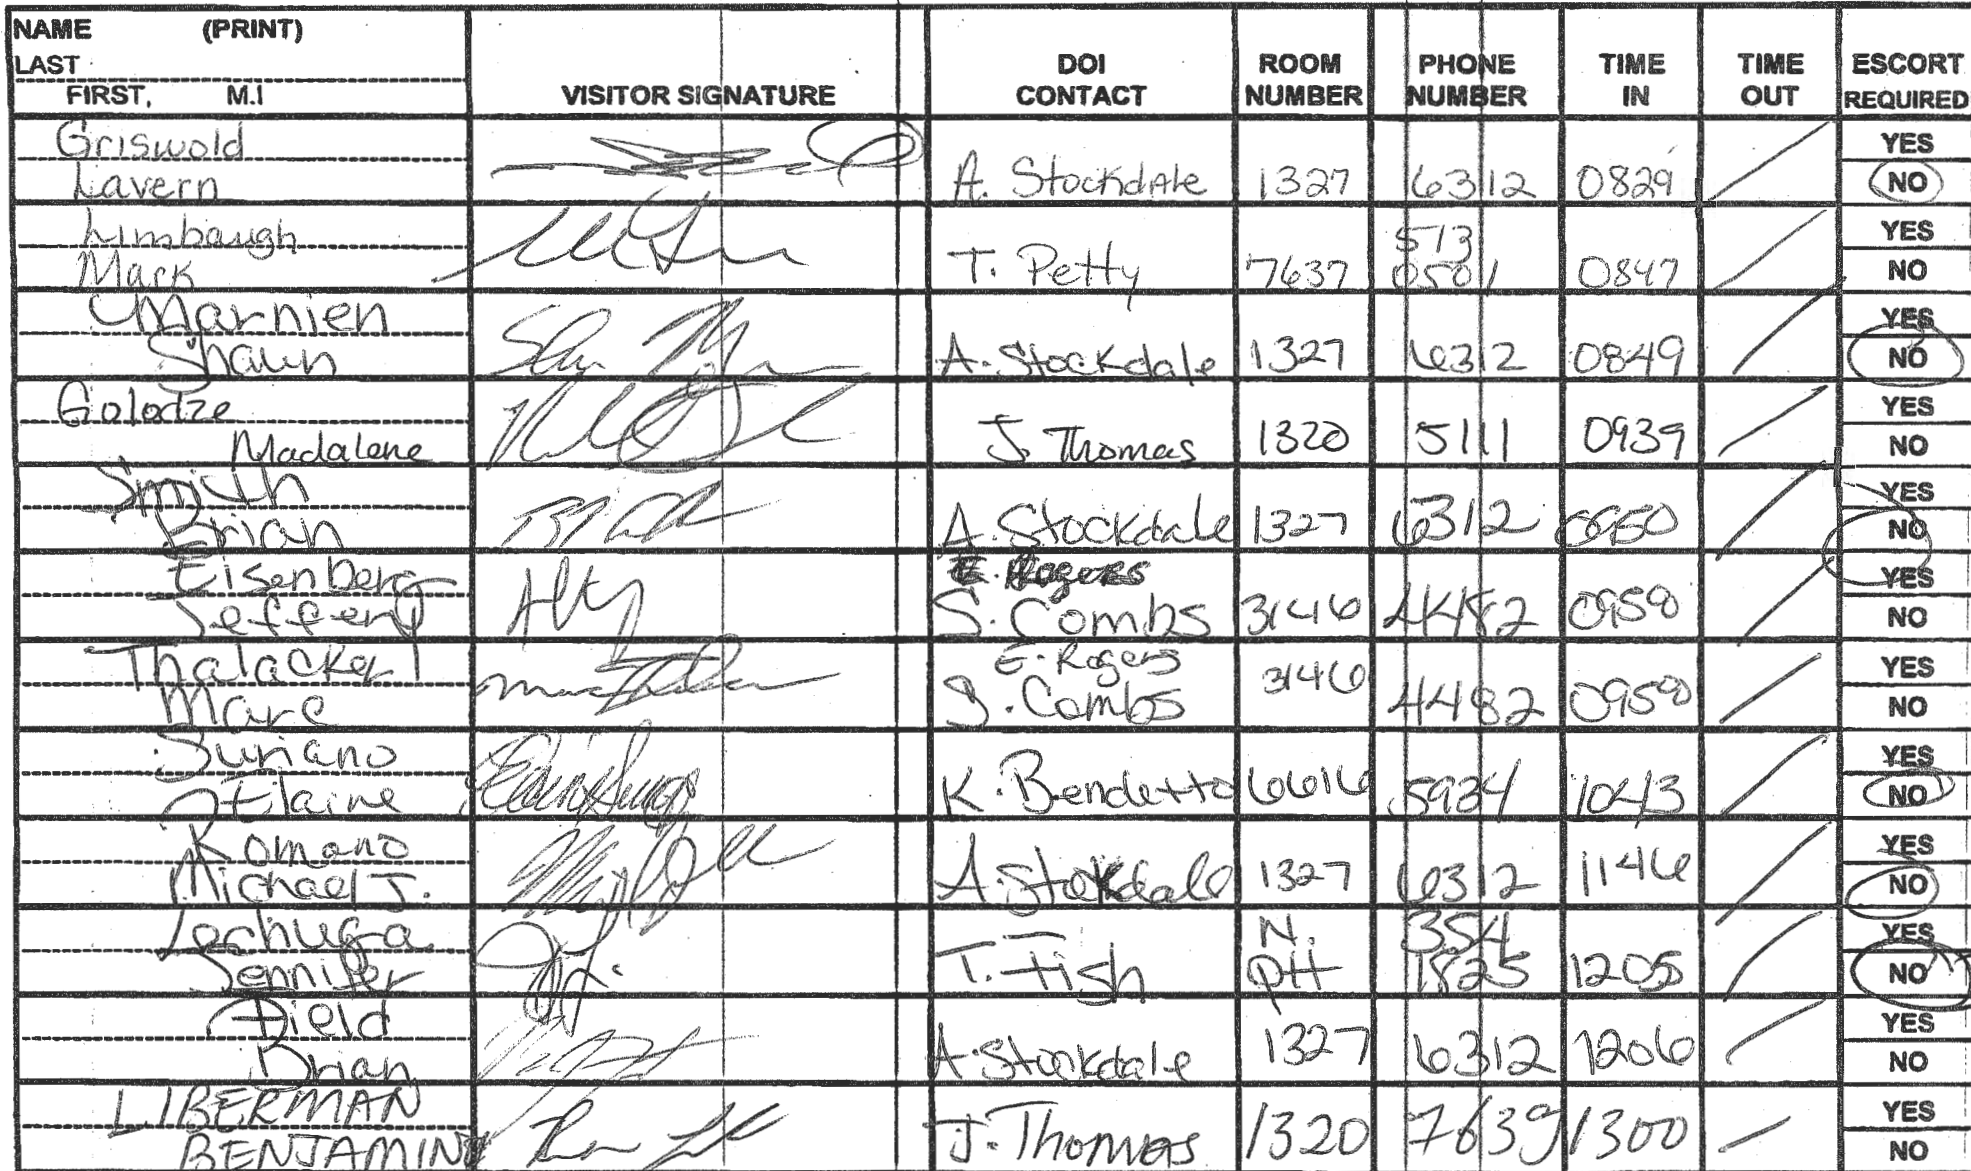 NAME (PRINT)
LAST
FIRST, M.I
VISITOR SIGNATURE
DOI CONTACT
ROOM NUMBER
PHONE NUMBER
TIME IN
TIME OUT
ESCORT REQUIRED
Griswold
Lavern
A. Stockdale 1327 6312 0829
YES
NO
Limbaugh
Mark
T. Petty 7637 513 0501 0847
YES
NO
Marnien
Shaun
A. Stockdale 1327 6312 0849
YES
NO
Golodze
Madalene
J. Thomas 1320 5111 0939
YES
NO
Smith
Brian
A. Stockdale 1327 6312 0950
YES
NO
Eisenberg
Jeffery
E. Rogers
S. Combs 3146 4482 0950
YES
NO
Thalacker
Marc
E. Rogers
S. Combs 3146 4482 0950
YES
NO
Suriano
Elaine
K. Bendetto 6616 5934 1043
YES
NO
Romano
Michael J.
A. Stockdale 1327 6312 1146
YES
NO
Lechuga
Jennifer
T. Fish N. PH 354 1825 1205
YES
NO
Field
Brian
A. Stockdale 1327 6312 1206
YES
NO
LIBERMAN
BENJAMIN
J. Thomas 1320 7639 1300
YES
NO